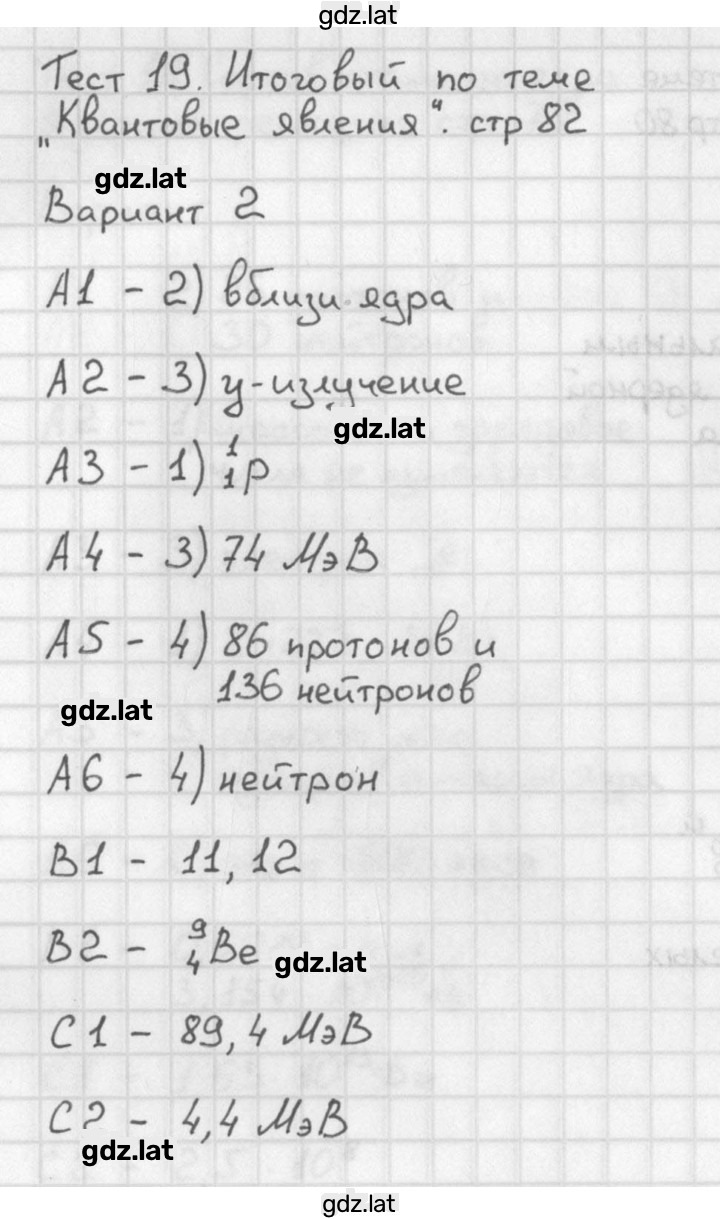 gdz.lat
Тест 19. Итоговый по теме
„Квантовые явления“. стр 82
gdz.lat
Вариант 2
А1 - 2) вблизи ядра
А2 - 3) γ-излучение
gdz.lat
А3 - 1) ¹₁p
А4 - 3) 74 МэВ
А5 - 4) 86 протонов и
136 нейтронов
gdz.lat
А6 - 4) нейтрон
В1 - 11, 12
В2 - ⁹₄Be
gdz.lat
С1 - 89,4 МэВ
С2 - 4,4 МэВ
gdz.lat
gdz.lat